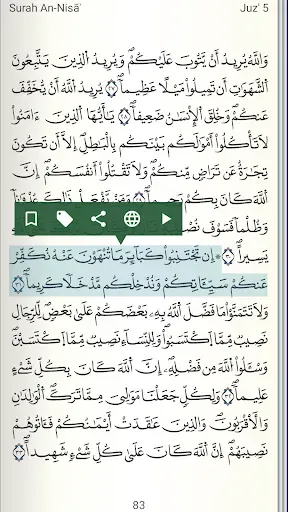 Surah An-Nisā' Juz' 5
وَٱللَّهُ يُرِيدُ أَن يَتُوبَ عَلَيْكُمْ وَيُرِيدُ ٱلَّذِينَ يَتَّبِعُونَ
ٱلشَّهَوَٰتِ أَن تَمِيلُوا۟ مَيْلًا عَظِيمًا ٢٧ يُرِيدُ ٱللَّهُ أَن يُخَفِّفَ
عَنكُمْ وَخُلِقَ ٱلْإِنسَٰنُ ضَعِيفًا ٢٨ يَٰٓأَيُّهَا ٱلَّذِينَ ءَامَنُوا۟
لَا تَأْكُلُوٓا۟ أَمْوَٰلَكُم بَيْنَكُم بِٱلْبَٰطِلِ إِلَّآ أَن تَكُونَ
تِجَٰرَةً عَن تَرَاضٍ مِّنكُمْ وَلَا تَقْتُلُوٓا۟ أَنفُسَكُمْ إِنَّ
ٱللَّهَ كَانَ بِكُمْ رَحِيمًا ٢٩ وَمَن يَفْعَلْ ذَٰلِكَ عُدْوَٰنًا
وَظُلْمًا فَسَوْفَ
يَسِيرًا ٣٠ إِن تَجْتَنِبُوا۟ كَبَآئِرَ مَا تُنْهَوْنَ عَنْهُ نُكَفِّرْ
عَنكُمْ سَيِّـَٔاتِكُمْ وَنُدْخِلْكُم مُّدْخَلًا كَرِيمًا ٣١
وَلَا تَتَمَنَّوْا۟ مَا فَضَّلَ ٱللَّهُ بِهِۦ بَعْضَكُمْ عَلَىٰ بَعْضٍ لِّلرِّجَالِ
نَصِيبٌ مِّمَّا ٱكْتَسَبُوا۟ وَلِلنِّسَآءِ نَصِيبٌ مِّمَّا ٱكْتَسَبْنَ
وَسْـَٔلُوا۟ ٱللَّهَ مِن فَضْلِهِۦٓ إِنَّ ٱللَّهَ كَانَ بِكُلِّ شَىْءٍ
عَلِيمًا ٣٢ وَلِكُلٍّ جَعَلْنَا مَوَٰلِىَ مِمَّا تَرَكَ ٱلْوَٰلِدَانِ
وَٱلْأَقْرَبُونَ وَٱلَّذِينَ عَقَدَتْ أَيْمَٰنُكُمْ فَـَٔاتُوهُمْ
نَصِيبَهُمْ إِنَّ ٱللَّهَ كَانَ عَلَىٰ كُلِّ شَىْءٍ شَهِيدًا ٣٣
83